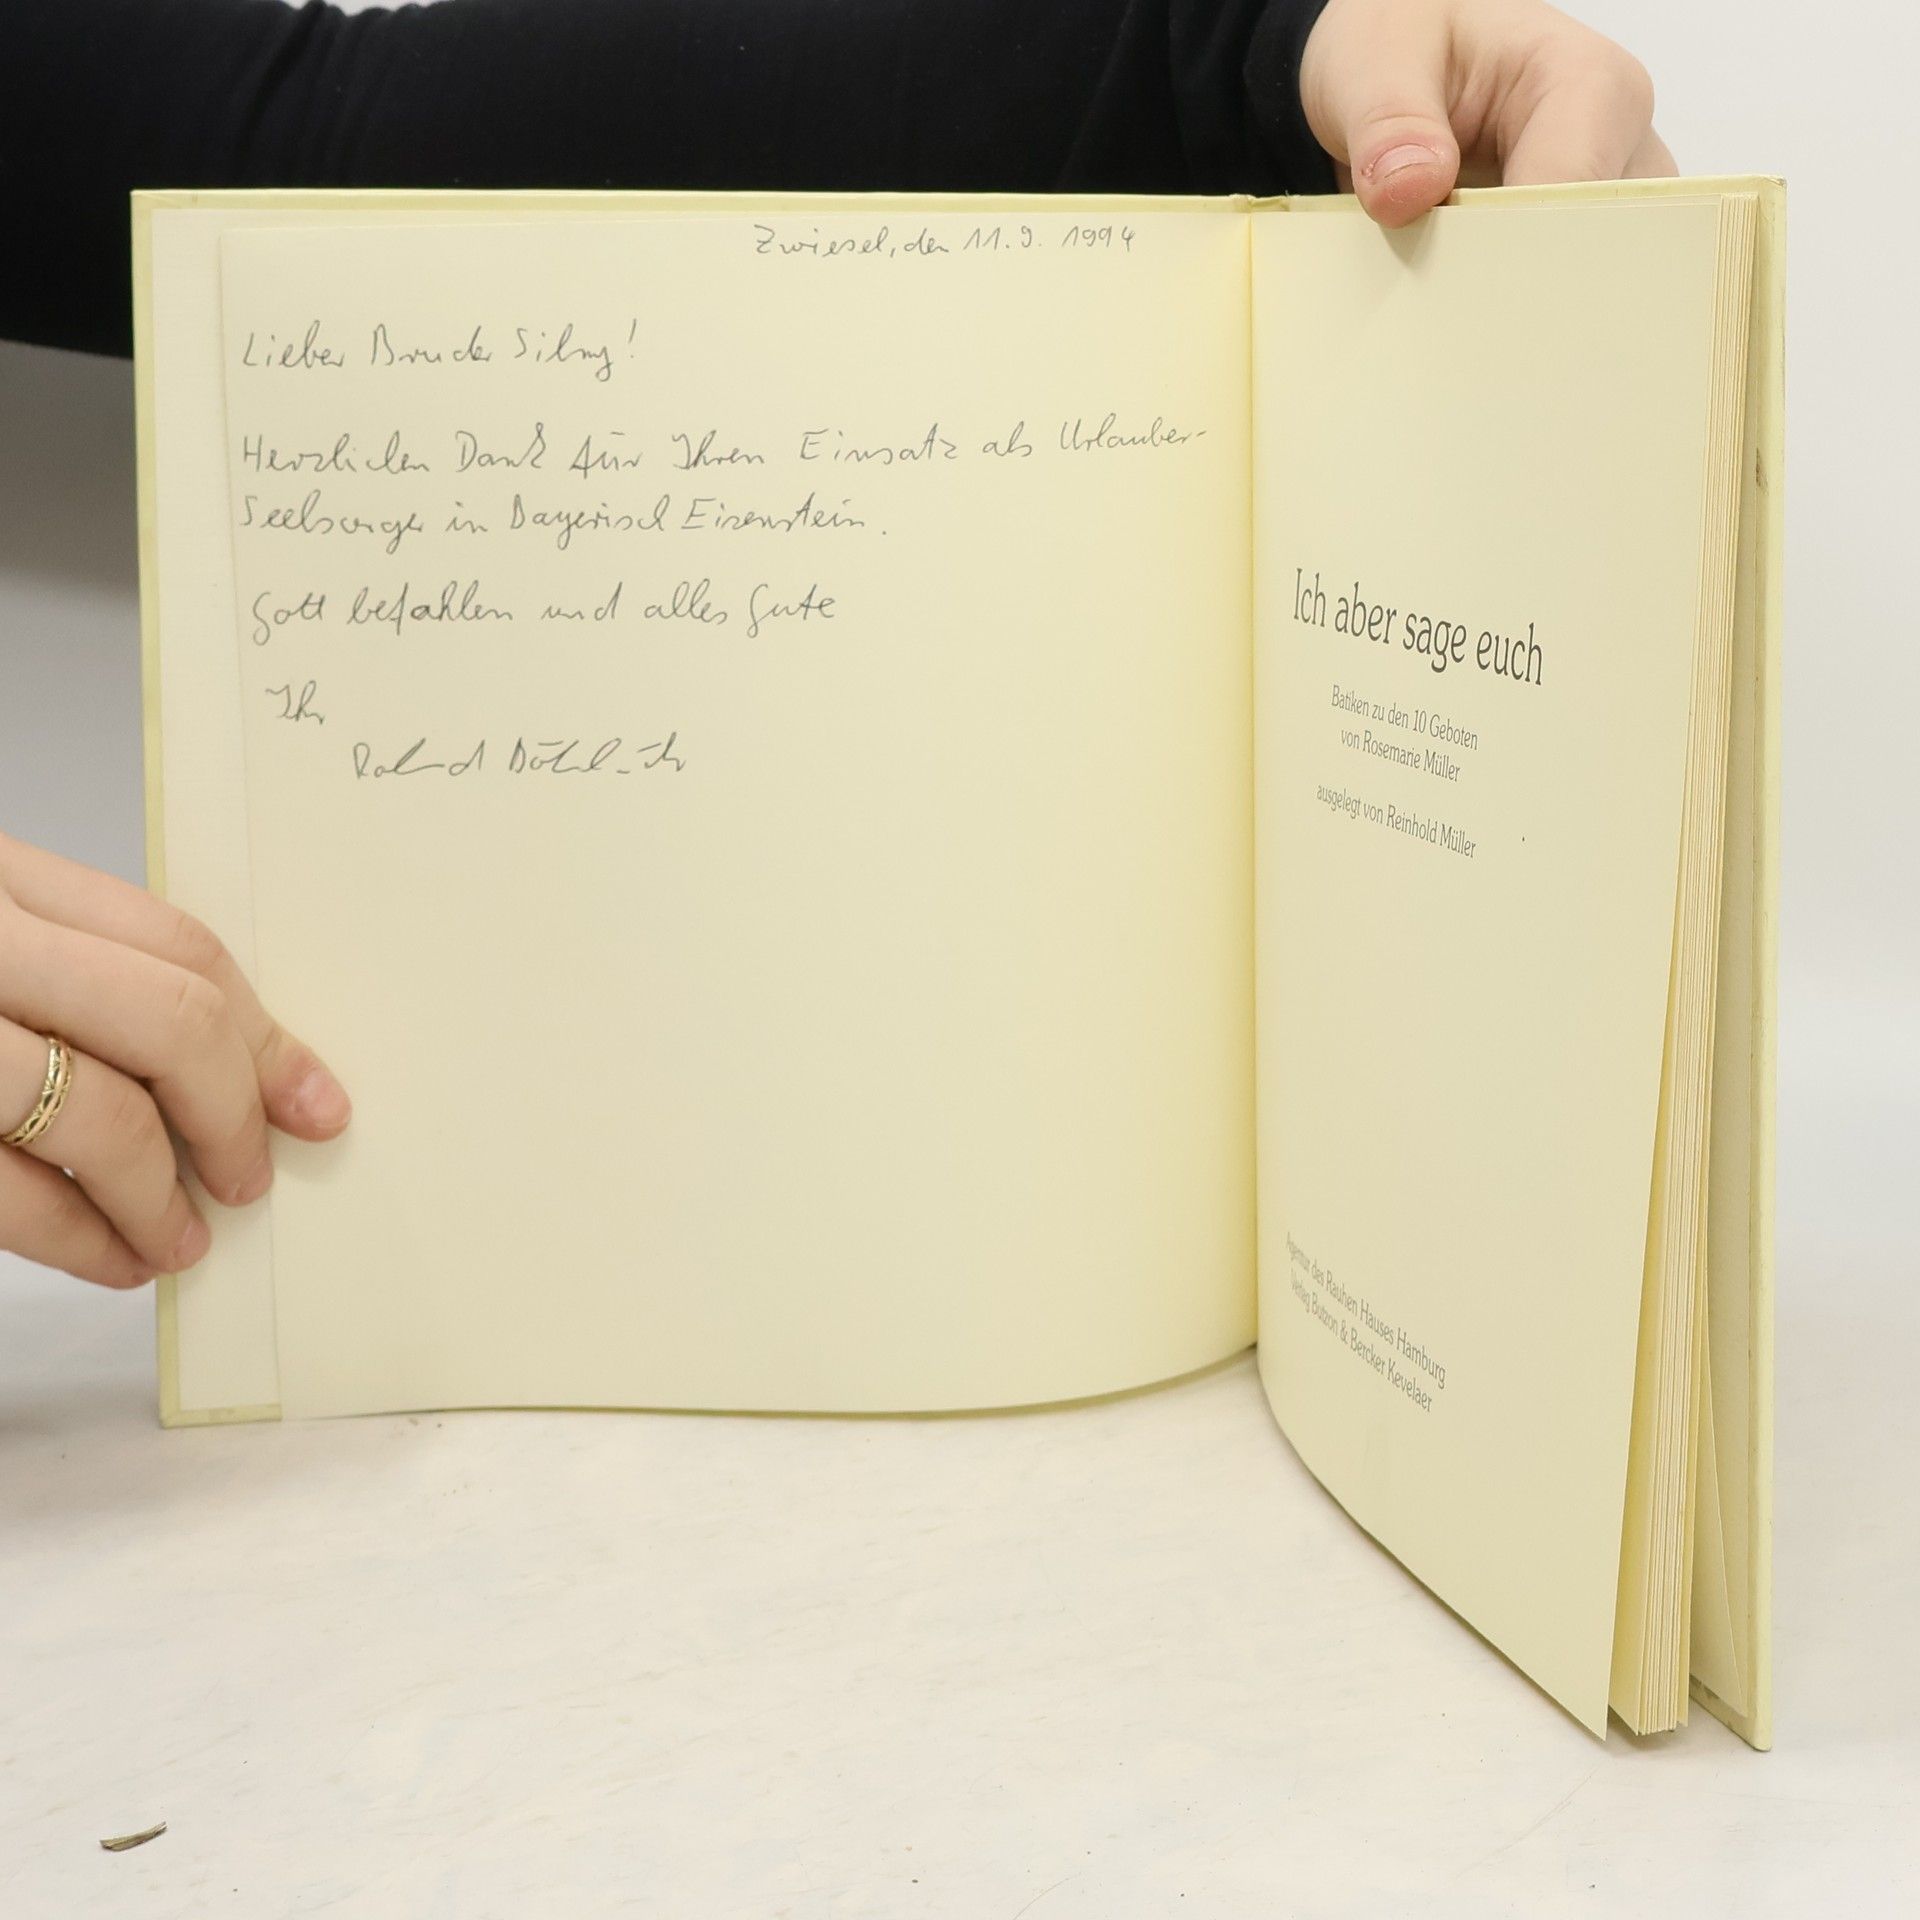 Zwiesel, den 11.9.1994
Lieber Bruder
Herzlichen Dank für Ihren Einsatz als Urlauber-
Seelsorger in Bayerisch Eisenstein.
Gott befohlen und alles Gute
Ihr
Roland
Ich aber sage euch
Batiken zu den 10 Geboten
von Rosemarie Müller
ausgelegt von Reinhold Müller
Agentur des Rauhen Hauses Hamburg
Verlag Butzon & Bercker Kevelaer